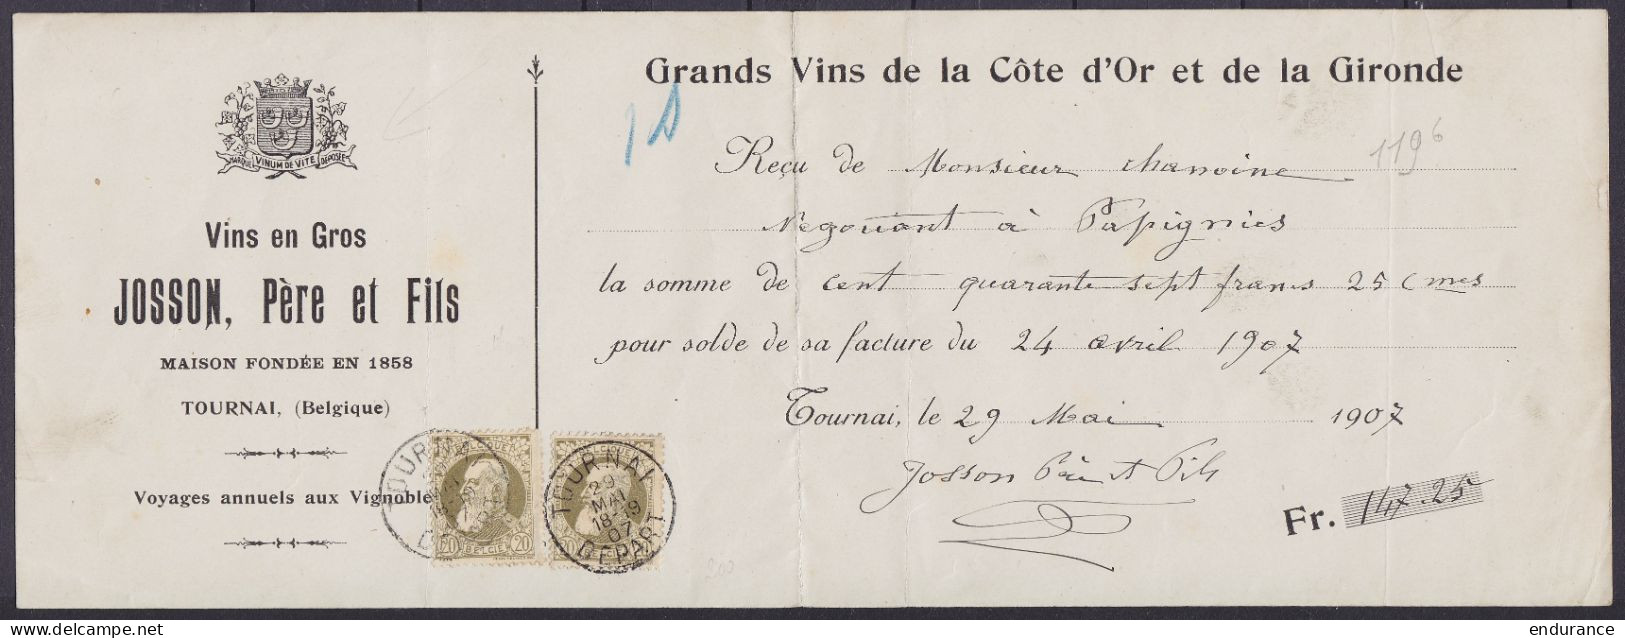 MARQUE VINUM DE VITE DÉPOSÉE
Vins en Gros
JOSSON, Père et Fils
MAISON FONDÉE EN 1858
TOURNAI, (Belgique)
Voyages annuels aux Vignobles
Grands Vins de la Côte d'Or et de la Gironde
1196
Reçu de Monsieur chanoine
Négociant à Papignies
la somme de cent quarante sept francs 25 cmes
pour solde de sa facture du 24 avril 1907
Tournai, le 29 Mai 1907
Josson Père et Fils
Fr. 147.25
TOURNAI
20 BELGIË 20
TOURNAI
29
MAI
18-19
07
DEPART
200
delcampe.net
endurance